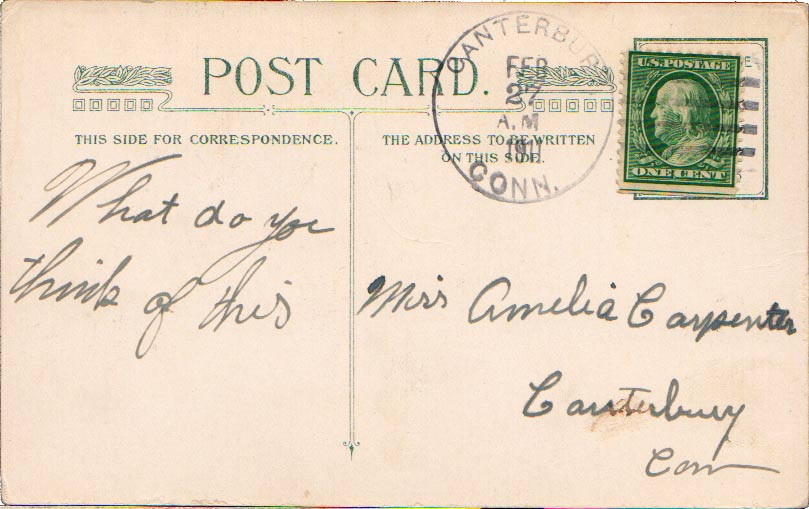 POST CARD.
THIS SIDE FOR CORRESPONDENCE.
THE ADDRESS TO BE WRITTEN
ON THIS SIDE.
CANTERBURY
FEB
27
A.M
1911
CONN.
U.S. POSTAGE
ONE CENT
What do you
think of this
Miss Amelia Carpenter
Canterbury
Conn